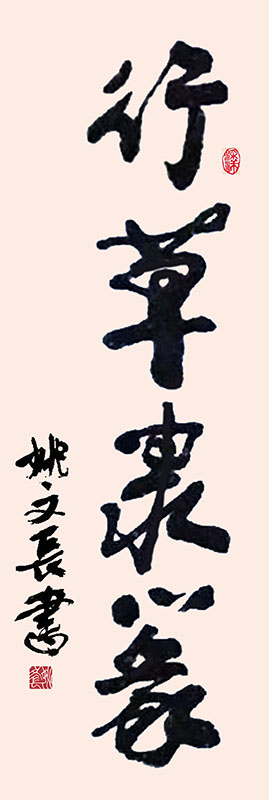 行草隶篆
姚文長書